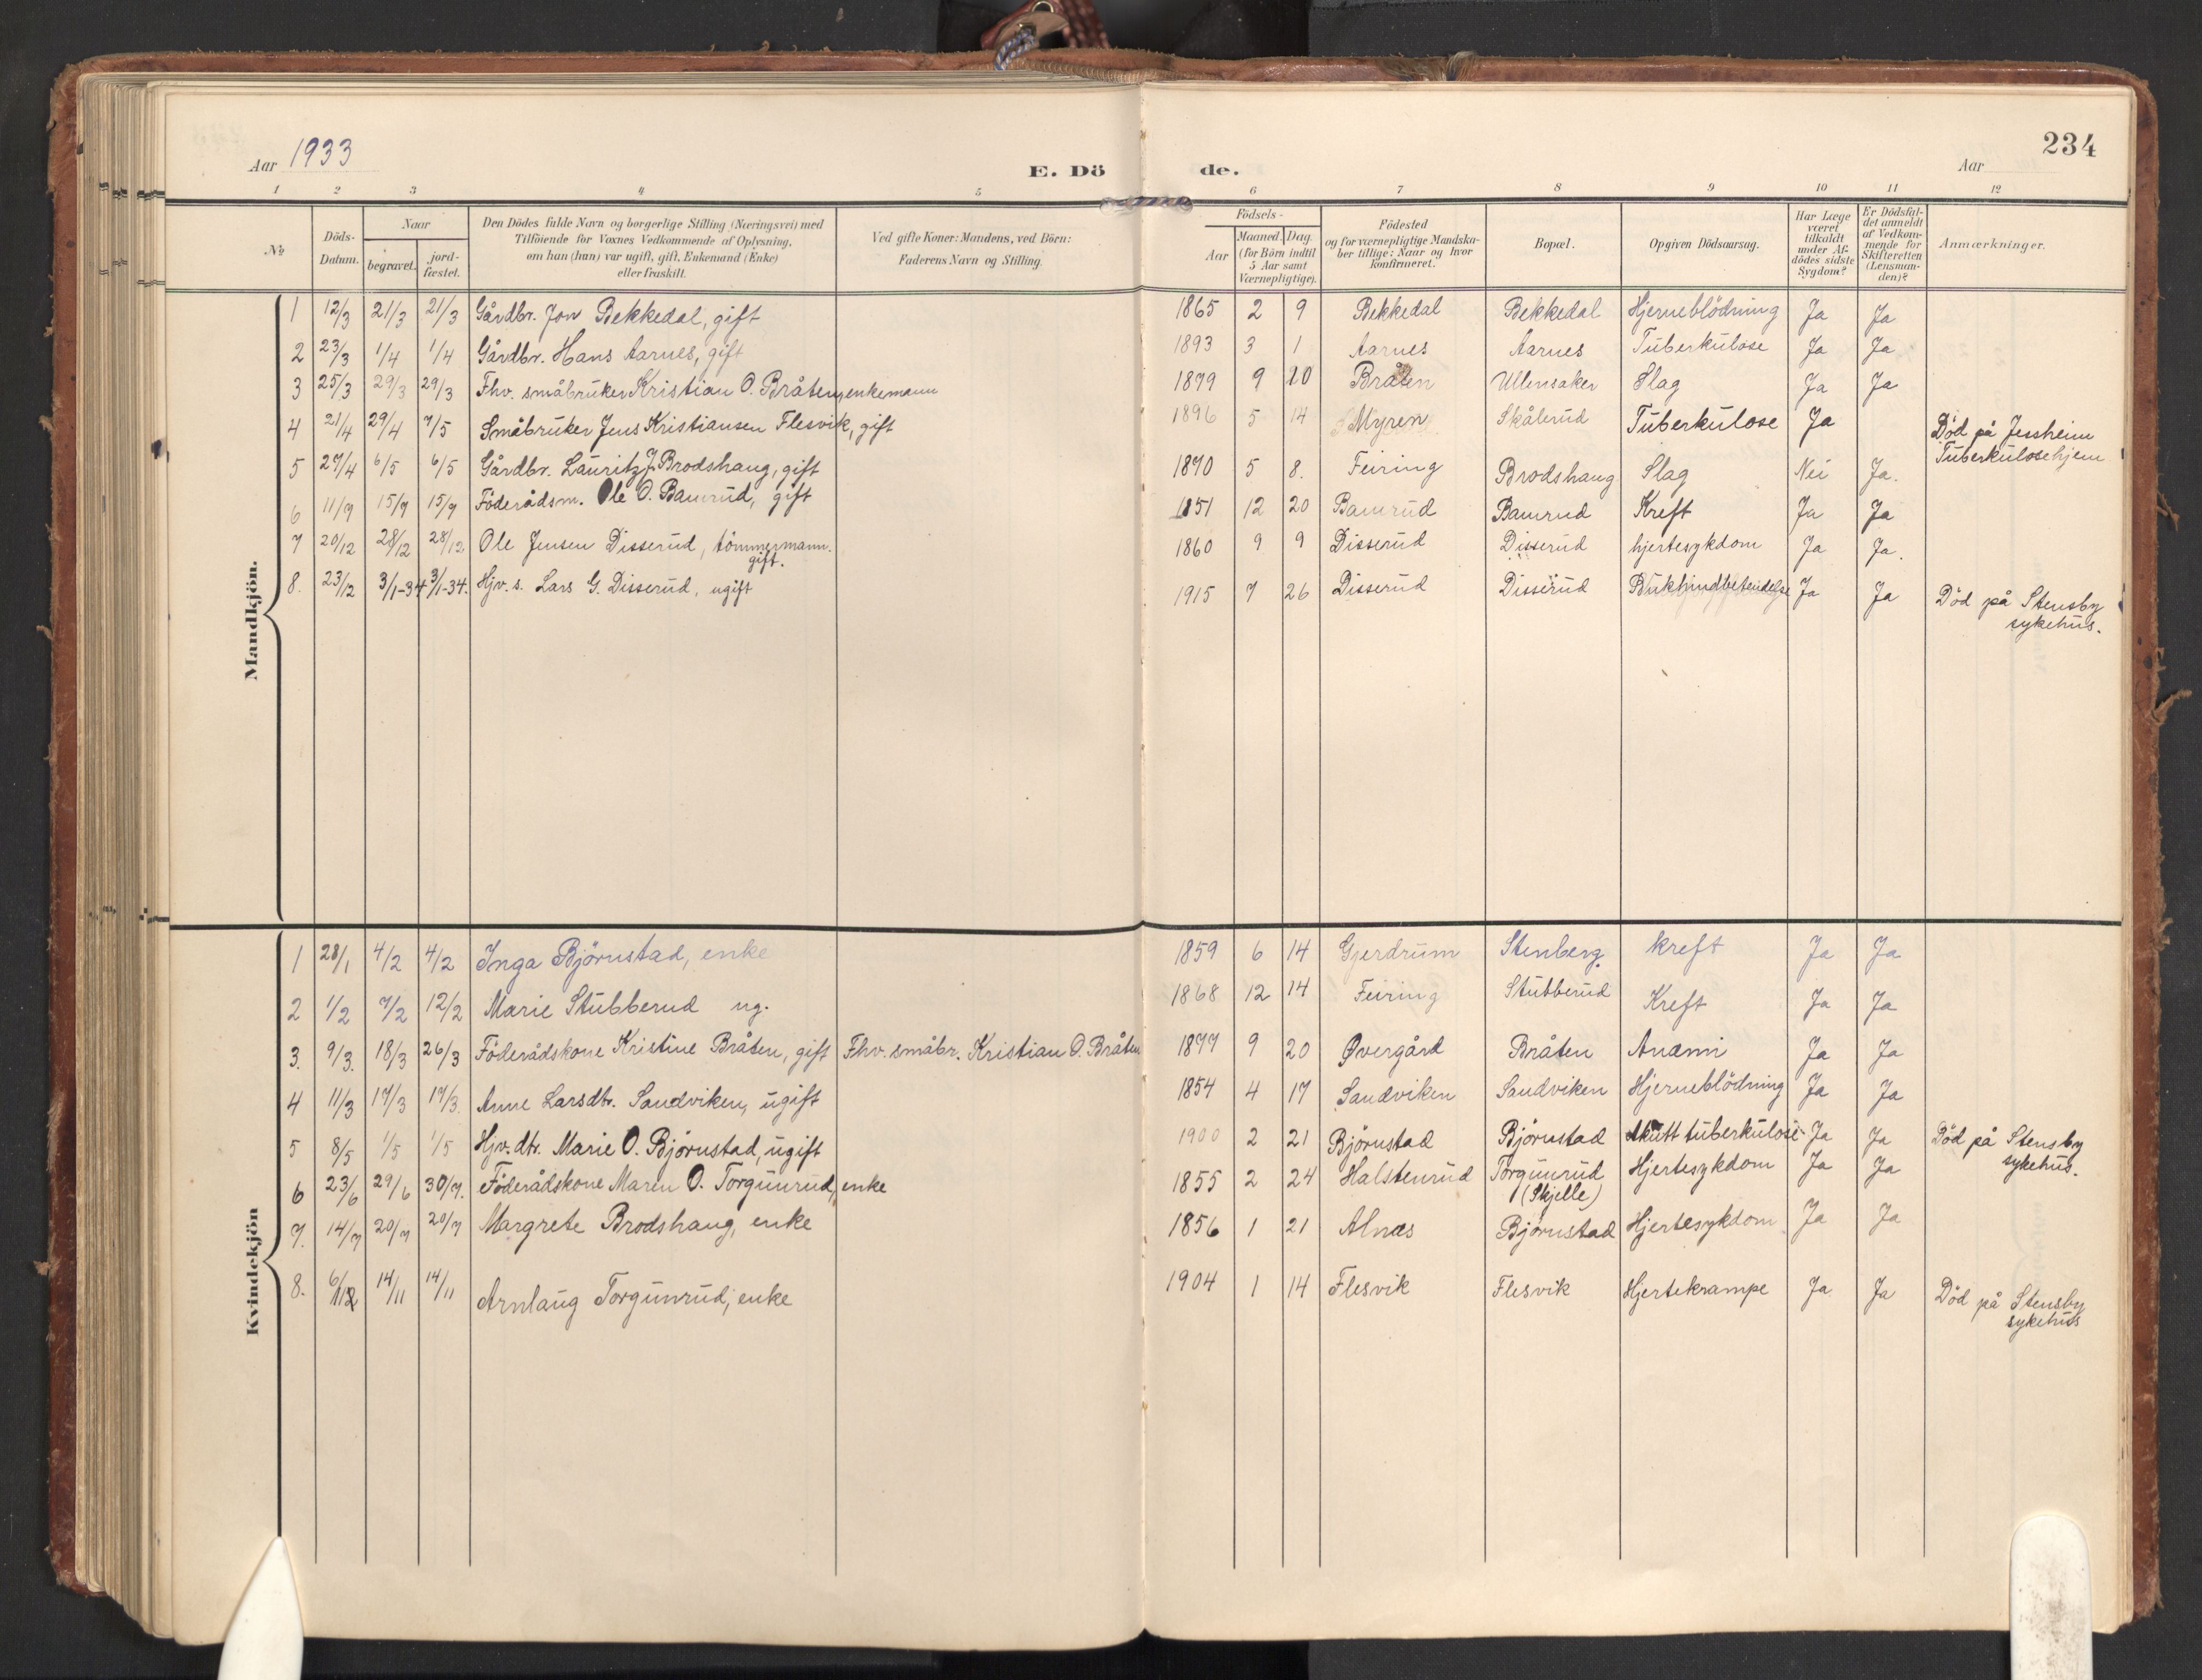 234
Aar 1933
E. Dö
de.
Aar
1 2 3 4 5 6 7 8 9 10 11 12
№
Döds-Datum.
Naar
begravet.
jord-fæstet.
Den Dödes fulde Navn og borgerlige Stilling (Næringsvei) med
Tilföiende for Voxnes Vedkommende af Oplysning,
om han (hun) var ugift, gift, Enkemand (Enke)
eller fraskilt.
Ved gifte Koner: Mandens, ved Börn:
Faderens Navn og Stilling.
Födsels-
Aar
Maaned. Dag.
(for Börn indtil
5 Aar samt
Værnepligtige).
Födested
og for værnepligtige Mandska-
ber tillige: Naar og hvor
konfirmeret.
Bopæl.
Opgiven Dödsaarsag.
Har Læge
været
tilkaldt
under Af-
dödes sidste
Sygdom?
Er Dödsfal-
det anmeldt
af Vedkom-
mende for
Skifteretten
(Lensman-
den)?
Anmærkninger.
Mandkjön.
1 12/3 21/3 21/3 Gårdbr. Jon Bekkedal, gift 1865 2 9 Bekkedal Bekkedal Hjerneblödning Ja Ja
2 23/3 1/4 1/4 Gårdbr. Hans Aarnes, gift 1893 3 1 Aarnes Aarnes Tuberkulose Ja Ja
3 25/3 29/3 29/3 Fhv. småbruker Kristian O. Bråten, enkemann 1879 9 10 Bråten Ullensaker Slag Ja Ja
4 21/4 29/4 7/5 Småbruker Jens Kristiansen Flesvik, gift 1896 5 14 Myren Skålerud Tuberkulose Ja Död på Jessheim
Tuberkulosehjem
5 27/4 6/5 6/5 Gårdbr. Lauritz J. Brodshaug, gift 1870 5 8. Feiring Brodshaug Slag Nei Ja.
6 11/7 15/7 15/7 Föderådsm. Ole O. Bamrud, gift 1851 12 20 Bamrud Bamrud Kreft Ja Ja
7 20/12 28/12 28/12 Ole Jensen Disserud, tömmermann.
gift. 1860 9 9 Disserud Disserud hjertesykdom Ja Ja.
8. 23/12 3/1-34 3/1-34. Hjv. s. Lars G. Disserud, ugift 1915 7 26 Disserud Disserud Bukhindbetendelse Ja Ja Död på Stensby
sykehus.
Kvindekjön
1 28/1 4/2 4/2 Inga Björnstad, enke 1859 6 14 Gjerdrum Stenberg. kreft Ja Ja
2 1/2 7/2 12/2 Marie Stubberud ug. 1868 12 14 Feiring Stubberud Kreft Ja Ja
3. 9/3. 18/3 26/3 Föderådskone Kristine Bråten, gift Fhv. småbr. Kristian O. Bråten 1877 9 20 Øvergård Bråten Anæmi Ja Ja
4 11/3 17/3 17/3. Anne Larsdtr. Sandviken, ugift 1854 4 17 Sandviken Sandviken Hjerneblödning Ja Ja
5 8/5 1/5 1/5 Hjv. dtr. Marie O. Björnstad, ugift 1900 2 21 Björnstad Björnstad Akutt tuberkulose Ja Ja Död på Stensby
sykehus.
6 23/6 29/6 30/7. Föderådskone Maren O. Torgunrud, enke 1855 2 24 Halstenrud Torgunrud
(Skjelle) Hjertesykdom Ja Ja
7. 14/7 20/7 20/7 Margrete Brodshaug, enke 1856 1 21 Alnæs Björnstad Hjertesykdom Ja Ja
8. 6/12 14/11 14/11 Arnlaug Torgunrud, enke 1904 1 14 Flesvik Flesvik Hjertekrampe Ja Ja Död på Stensby
sykehus